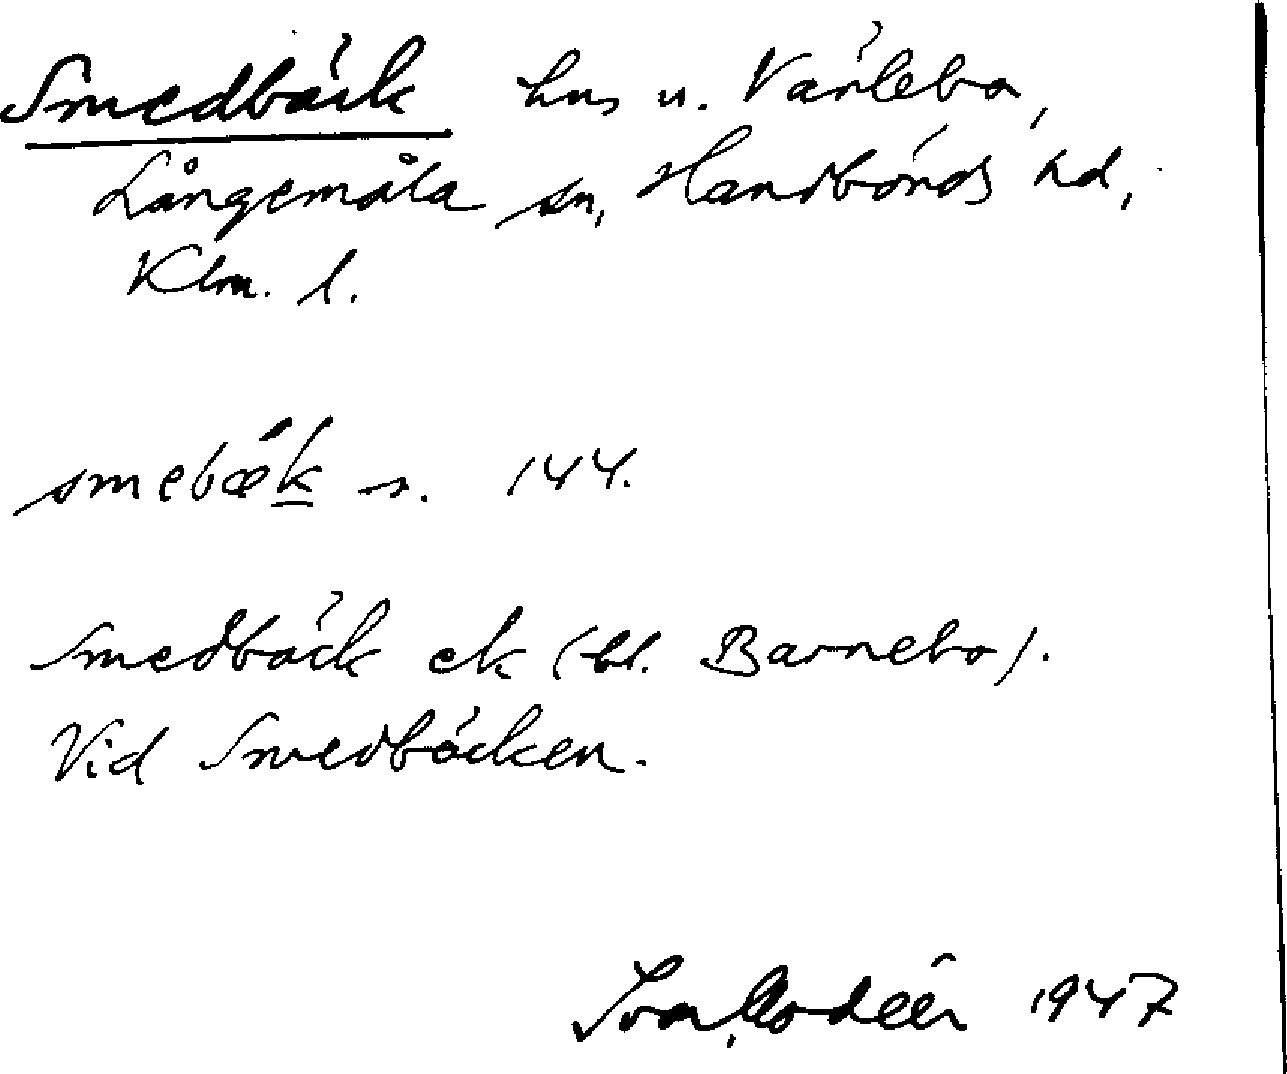 Smedbäck hus u. Värlebo,
Långemåla sn, Handbörds hd,
Klm. l.
smebæk s. 144.
Smedbäck ek (bl. Barnebo).
Vid Smedbäcken.
Ivar Modéer 1947